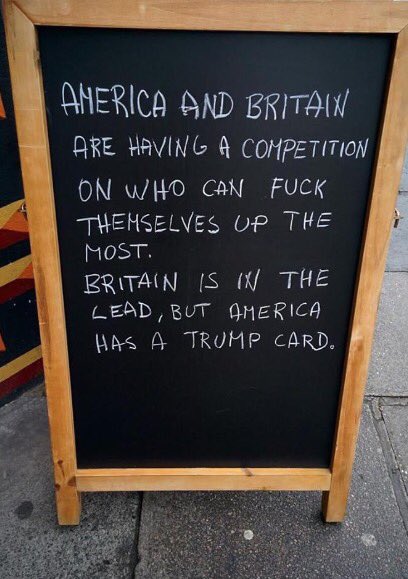 AMERICA AND BRITAIN
ARE HAVING A COMPETITION
ON WHO CAN FUCK
THEMSELVES UP THE
MOST.
BRITAIN IS IN THE
LEAD, BUT AMERICA
HAS A TRUMP CARD.